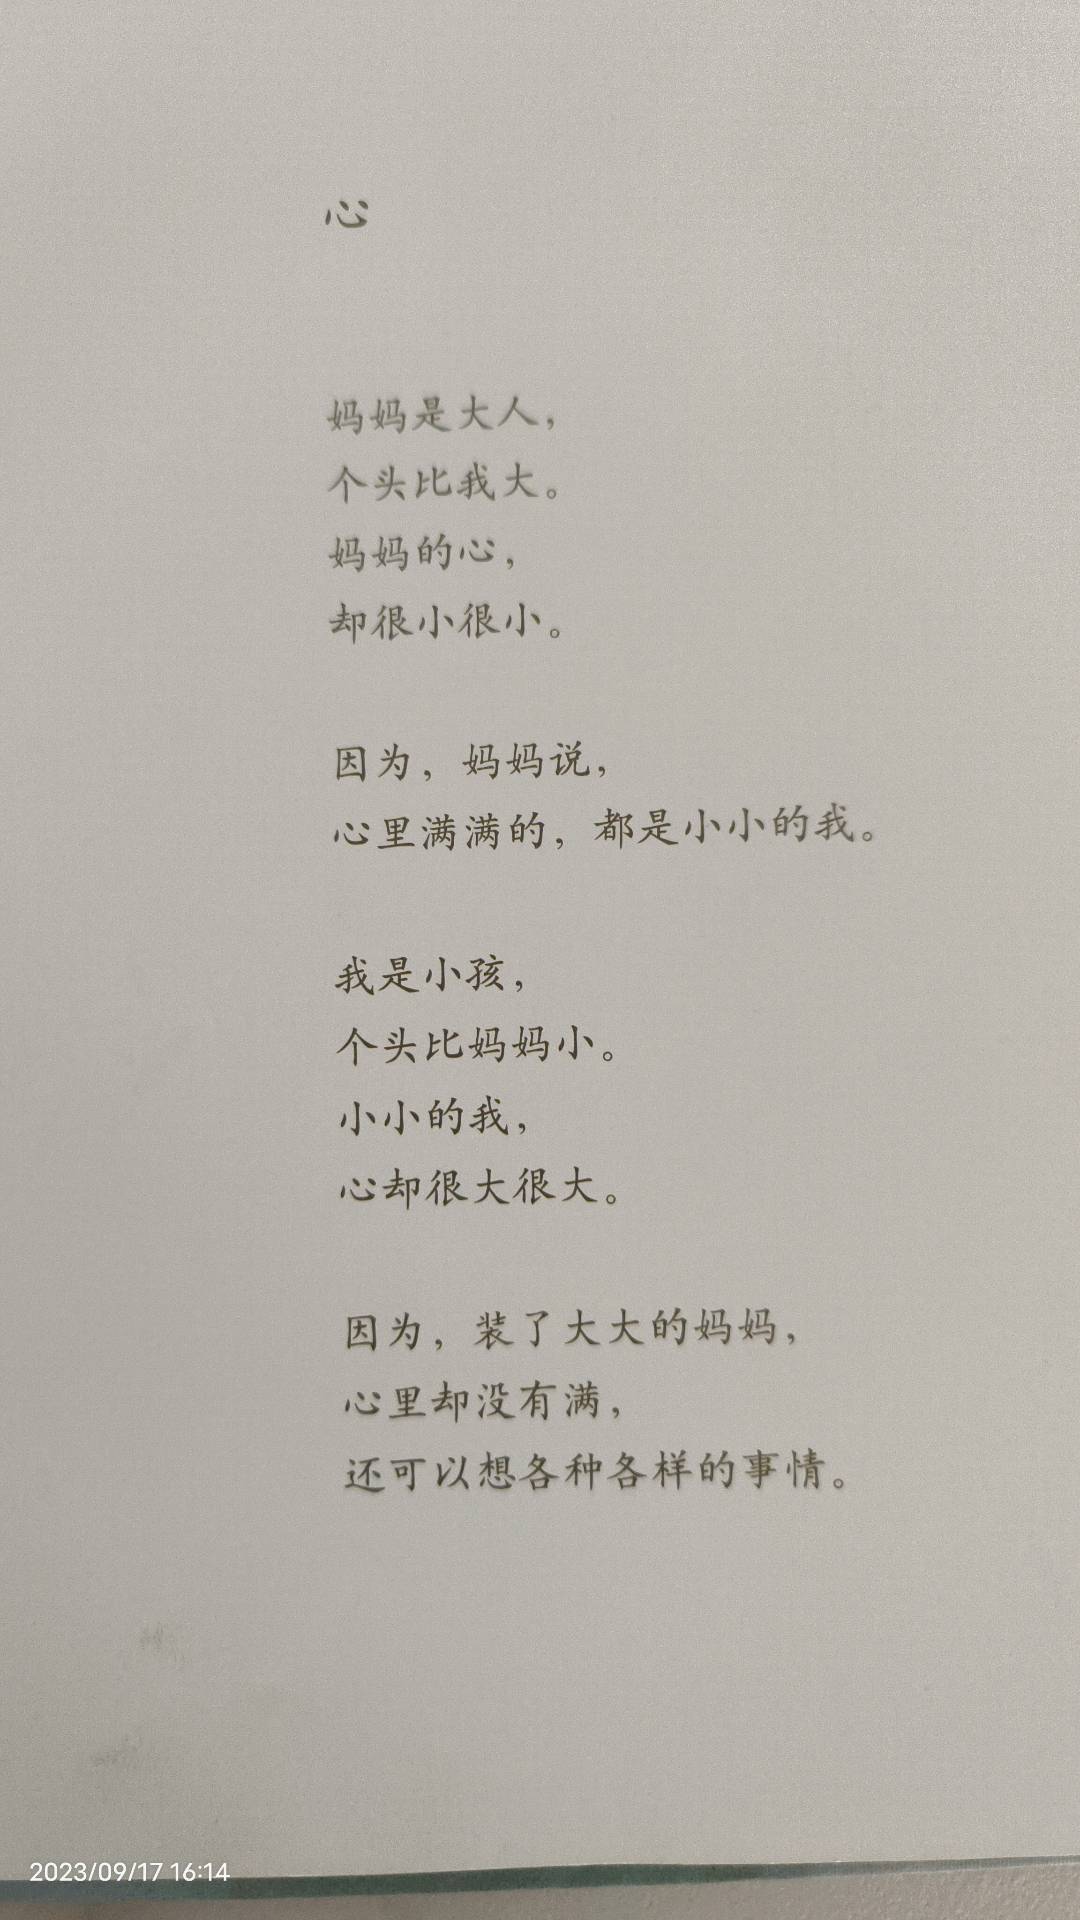 心
妈妈是大人，
个头比我大。
妈妈的心，
却很小很小。
因为，妈妈说，
心里满满的，都是小小的我。
我是小孩，
个头比妈妈小。
小小的我，
心却很大很大。
因为，装了大大的妈妈，
心里却没有满，
还可以想各种各样的事情。
2023/09/17 16:14